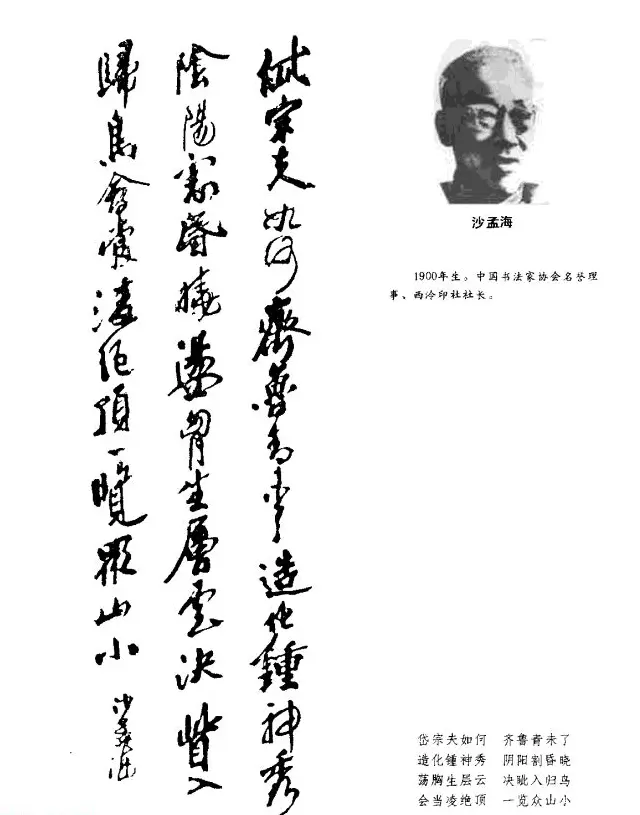 岱宗夫如何齊魯青未了造化鍾神秀
陰陽割昬曉盪胷生層雲決眥入
歸鳥會當凌絕頂一覽眾山小 沙孟海
沙孟海
1900年生。中国书法家协会名誉理
事、西泠印社社长。
岱宗夫如何 齐鲁青未了
造化锺神秀 阴阳割昏晓
荡胸生层云 决眦入归鸟
会当凌绝顶 一览众山小